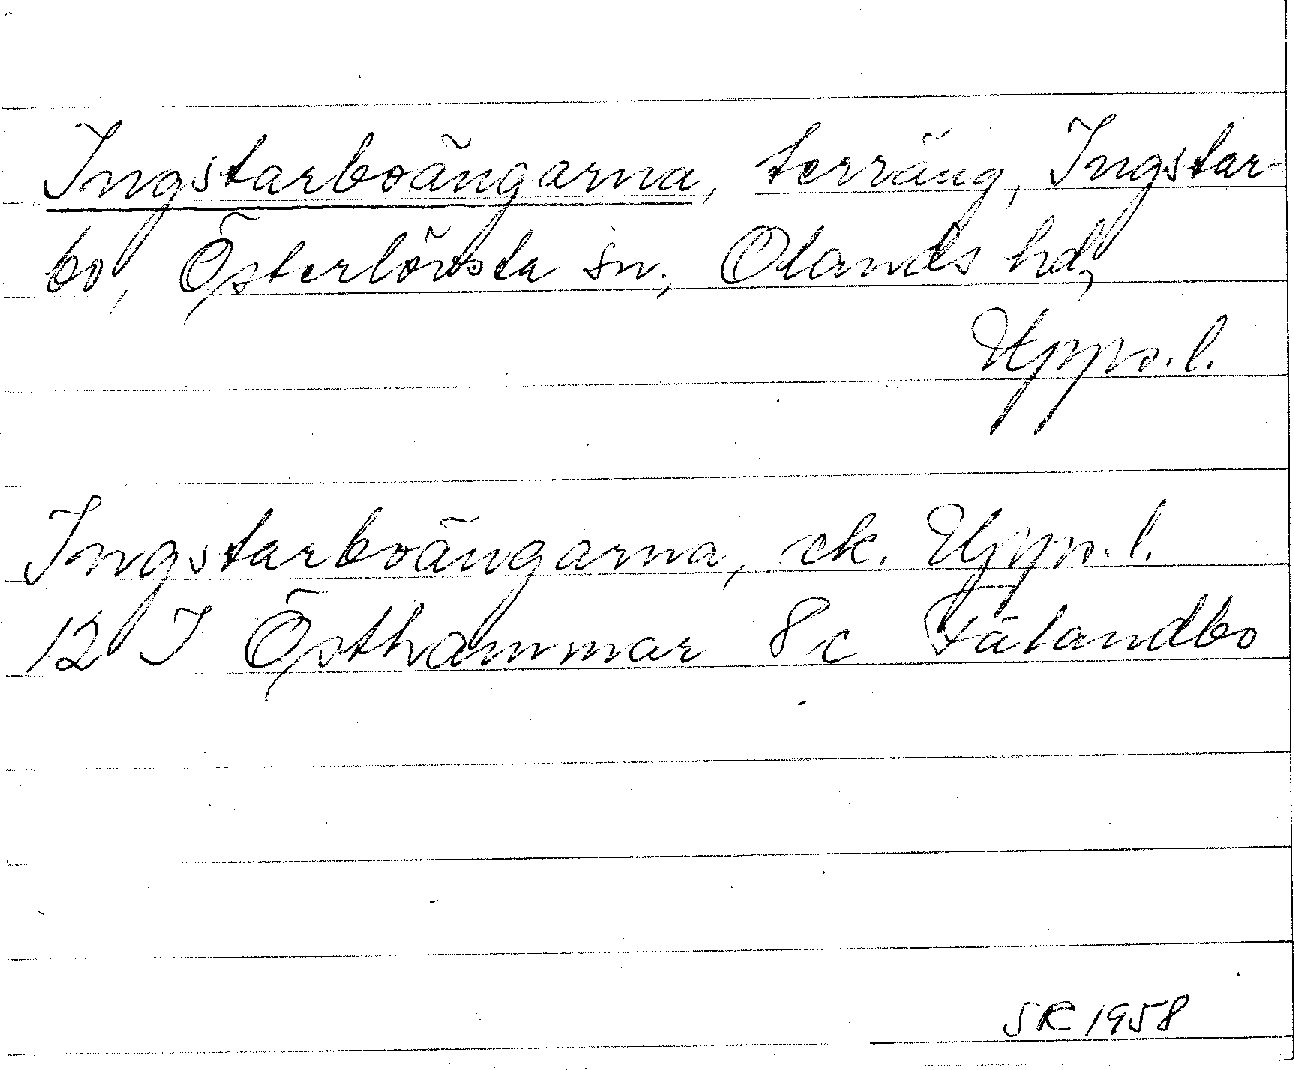 Ingstarboängarna, terräng, Ingstar-
bo, Österlövsta sn, Olands hd,
Upps. l.
Ingstarboängarna, ek. Upps. l.
12 I Östhammar 8c Fälandbo
SR 1958